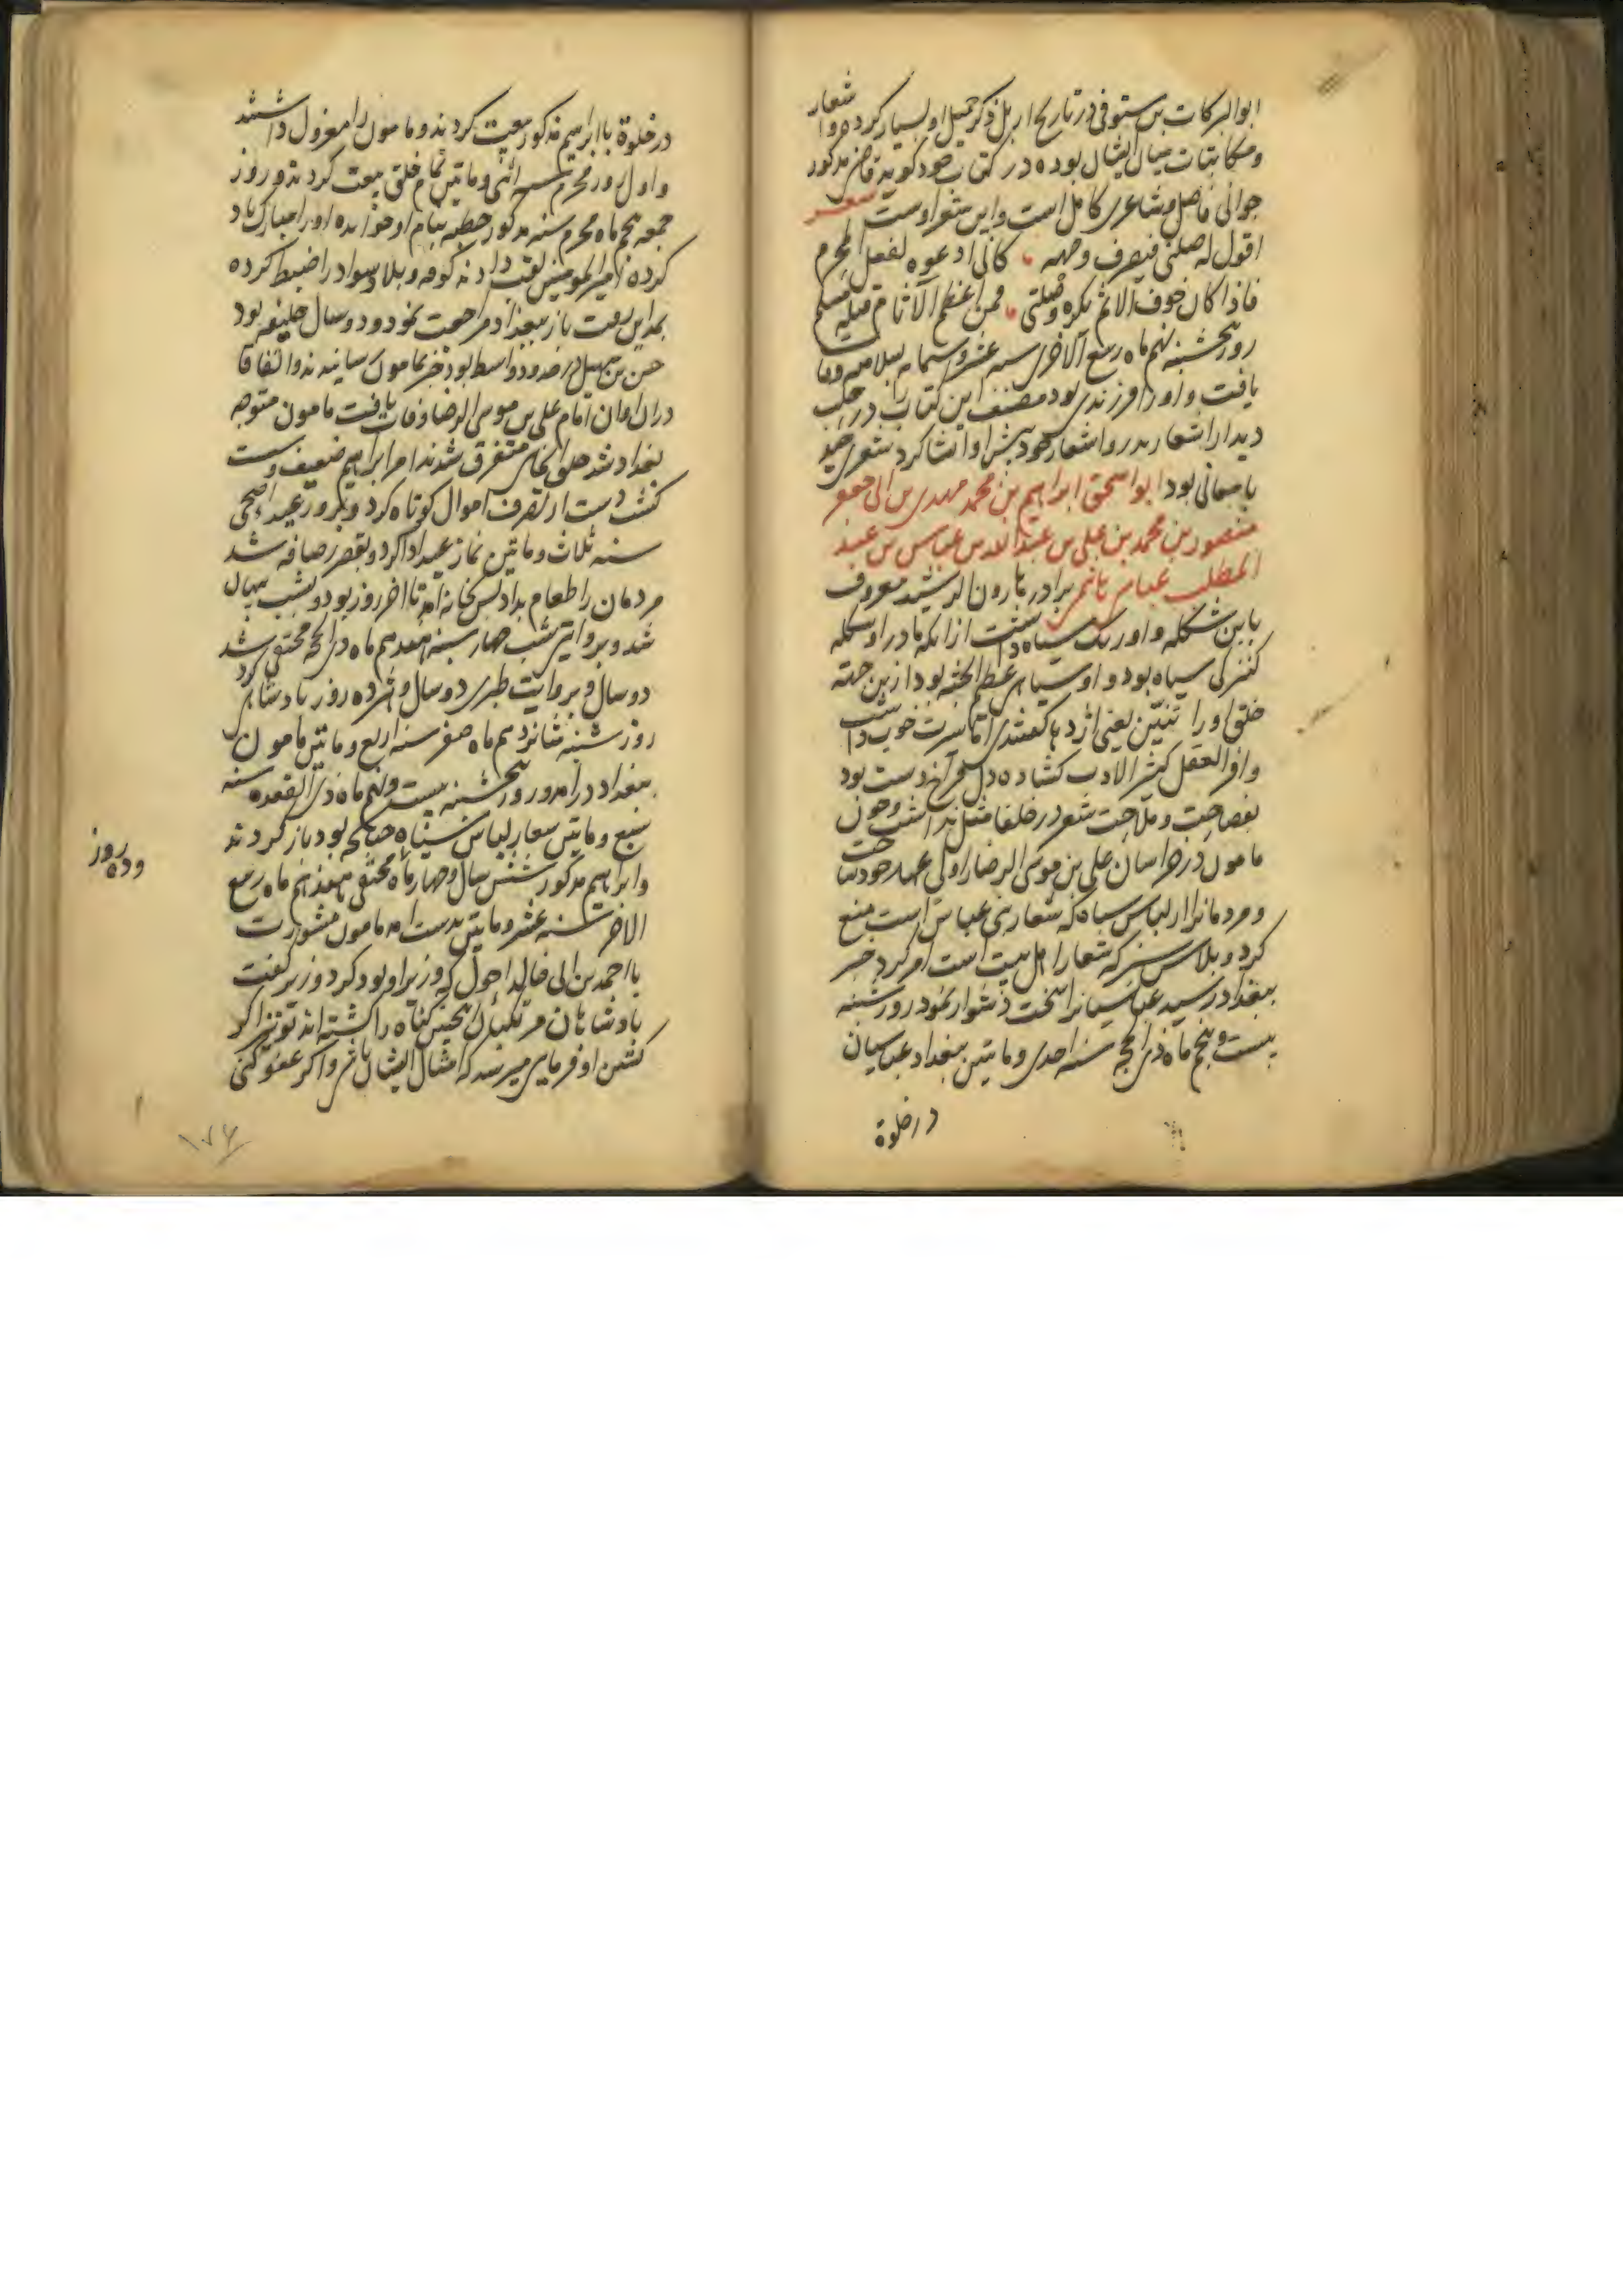 ابوالبرکات بن مستوفی در تاریخ اربل ذکر جمیل او بسیار کرده و اشعار
و مکاتبات میان ایشان بوده در کتاب خود گوید قاضی مذکور
جوانی فاضل و شاعری کامل است و این شعر اوست شعر
اقول له صلنی فیصرف وجهه کانی ادعوه لفعل المحرم
فاذا کان خوف الاثم یکره وصلتی فمن اعظم الآثام قتلة مسلم
روز پنجشنبه نهم ماه ربیع الآخر سنه عشر و ستمایه وفات
یافت و او را فرزندی بود مصنف این کتاب را در حلب
دیدار اشعار پدر و اشعار خود پیش او انشا کرد شعری جید
با معانی بود ابو اسحق ابراهیم بن محمد مهدی بن ابی جعفر
منصور بن محمد بن علی بن عبد الله بن عباس بن عبد
المطلب عباسی هاشمی برادر هارون الرشید معروف
بابن شکله و او رنگ سیاه داشت از آنکه مادر او شکله
کنیزکی سیاه بود و او سیاه عظیم الجثه بود ازین جهته
خلق او را تنین یعنی اژدها گفتندی اما سیرت خوب داشت
وافر العقل کثیر الادب گشاده دل فراخ دست بود
بفصاحت و ملاحت شعر در خلفا مثل نداشت و چون
مامون در خراسان علی بن موسی الرضا را ولی عهد خود ساخت
و مردمانرا از لباس سیاه که شعار بنی عباس است منع
کرد و بلباس سبز که شعار اهل بیت است امر کرد خبر
ببغداد رسید عباسیانرا سخت دشوار نمود روز شنبه
بیست و پنجم ماه ذی الحجه سنه احدی و ماتین ببغداد عباسیان
در خلوة
در خلوة با ابراهیم مذکور بیعت کردند و مامون را معزول داشتند
و اول روز محرم سنه اثنی و ماتین تمام خلق بیعت کردند و روز
جمعه پنجم ماه محرم سنه مذکور خطبه بنام او خوانده او را مبارک باد
کرده امیر المومنین لقب دادند کوفه و بلاد سواد را ضبط کرده
بمداین رفت باز ببغداد مراجعت نمود و دو سال خلیفه بود
حسن بن سهل در حدود واسط بود خبر بمامون رسانیدند و اتفاقا
در ان اوان امام علی بن موسی الرضا وفات یافت مامون متوجه
بغداد شد متفرق شدند امر ابراهیم ضعیف و سست
گشت دست از تصرف اموال کوتاه کرد و بروز عید اضحی
سنه ثلاث و ماتین نماز عید ادا کرد و بقصر رصافه شد
مردمان را طعام بداد پس بخانه آمد تا آخر روز بود و بشب پنهان
شد و بروایتی شب چهارشنبه هفدهم ماه ذی الحجه مختفی شد
دو سال و بروایت طبری دو سال و ده روز پادشاهی کرد
روز شنبه شانزدهم ماه صفر سنه اربع و ماتین مامون
ببغداد درآمد و روز پنجشنبه بیست و نهم ماه ذی القعده سنه
سبع و ماتین شعار لباس سیاه چنانچه بود باز کردند
و ابراهیم مذکور شش سال و چهار ماه مختفی
الآخر سنه عشر و ماتین بدست آمد مامون مشورت
با احمد بن ابی خالد احول که وزیر او بود کرد وزیر گفت
پادشاهان مرتکبان اینچنین گناه را کشته اند تو نیز اگر
کشتن او فرمایی میرسد که امثال ایشان باشی و اگر عفو کنی
و ده روز
۱۷۶